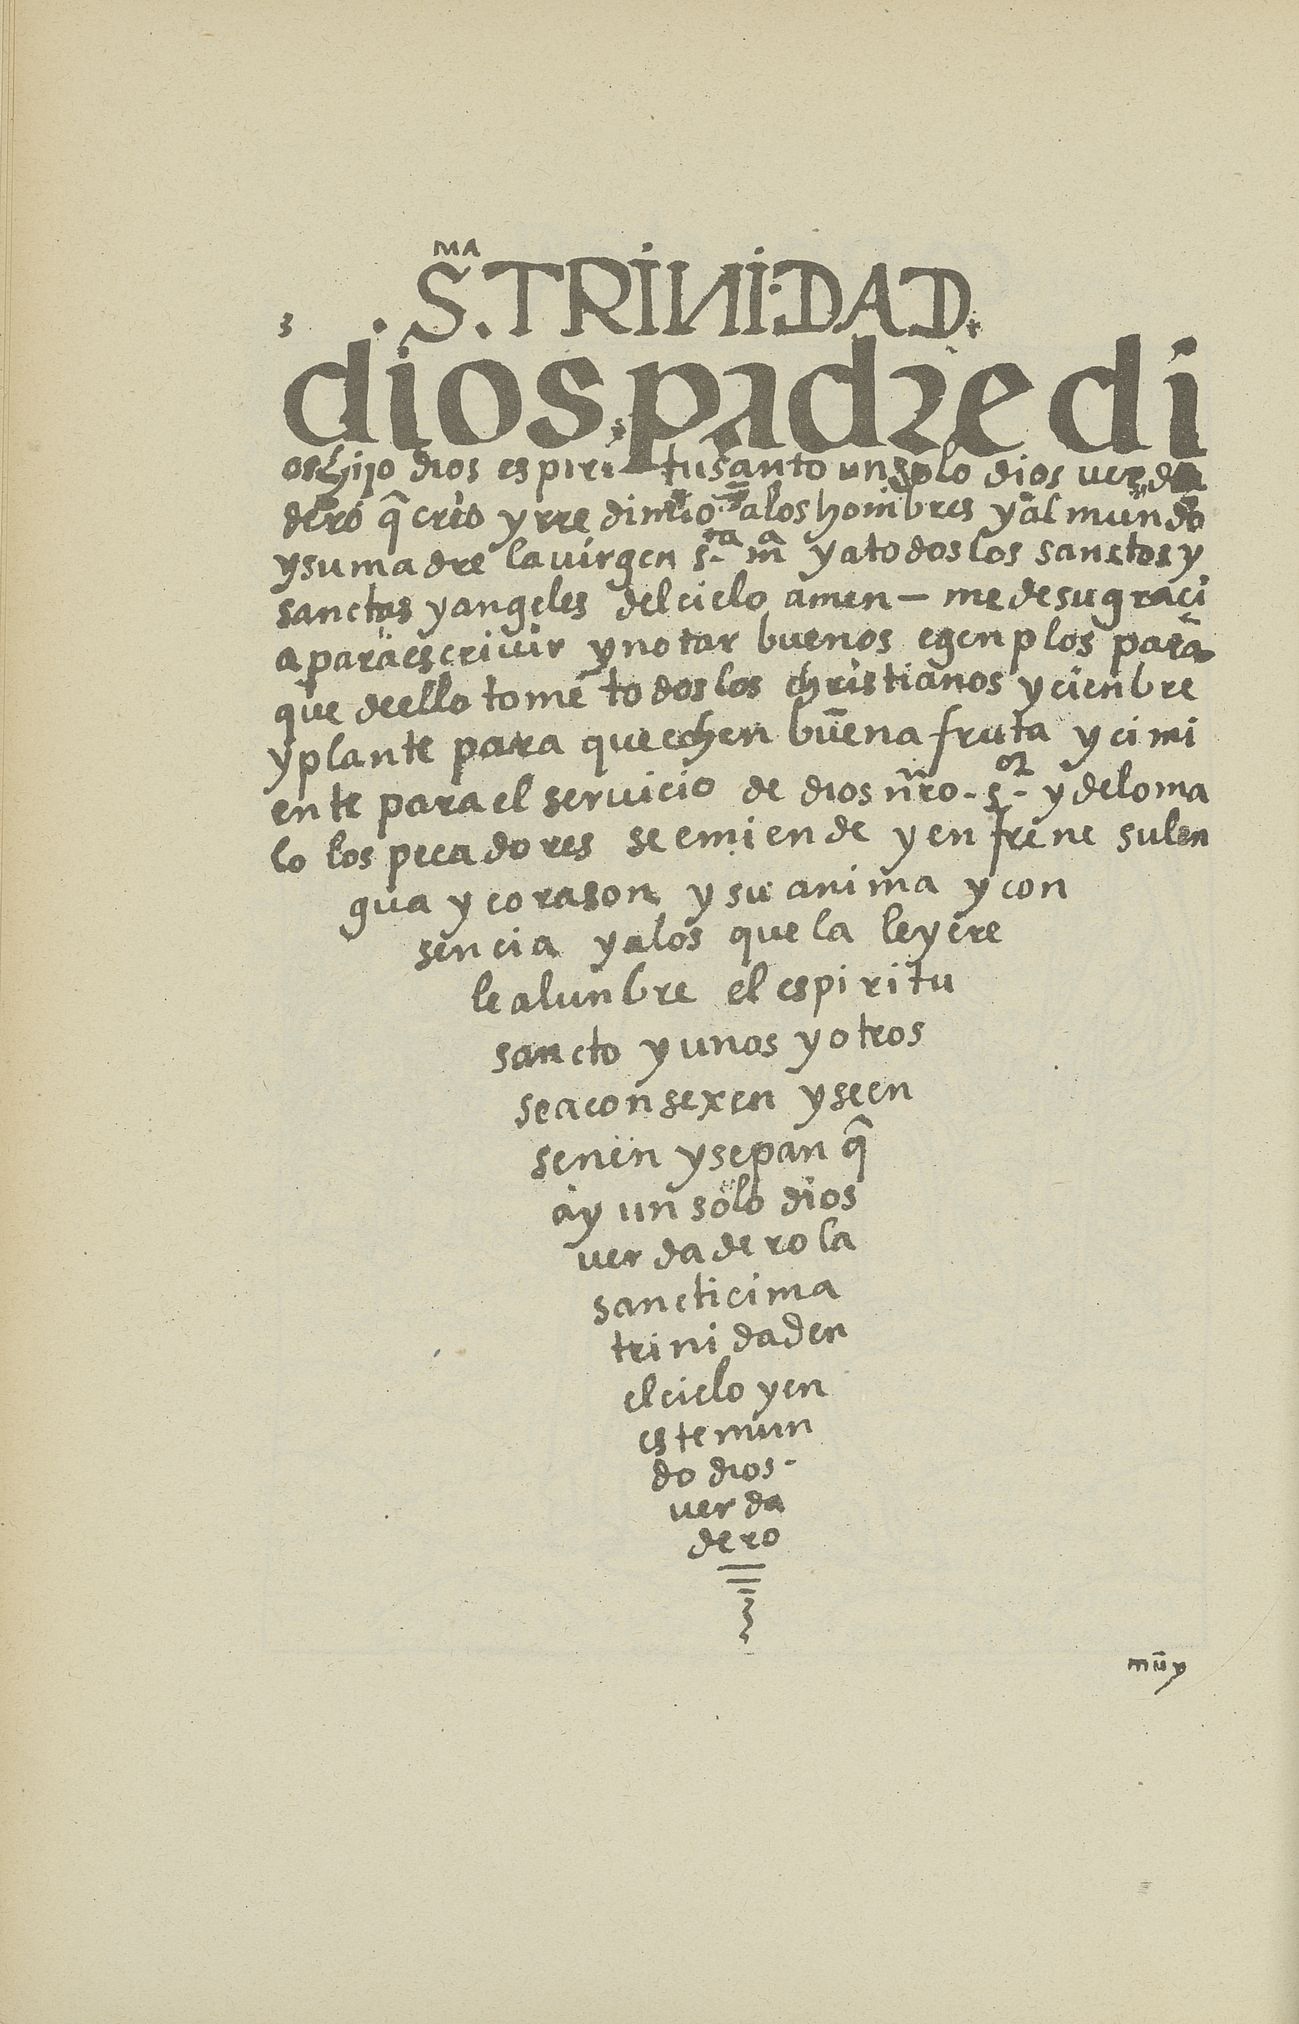 S.ᴹᴬ TRINIDAD
dios padre di
os hijo dios espiritu santo un solo dios verda
dero q̃ crio y rredimio a los hombres y al mundo
y su madre la virgen s.ta mª y a todos los sanctos y
sanctas y angeles del cielo amen — me de su graci
a para escrivir y notar buenos egenplos para
que de ello tome todos los christianos y cienbre
y plante para que echen buena fruta y cimi
ente para el servicio de dios nr̃o - s.or - y de lo ma
lo los pecadores se emiende y enfrene su len
gua y corason y su anima y con
sencia y a los que la leyere
le alunbre el espiritu
sancto y unos y otros
se aconsexen y se en
senen y sepan q̃
ay un solo dios
verdadero la
sancticima
trinidad en
el cielo y en
este mun
do dios -
verda
dero
muy